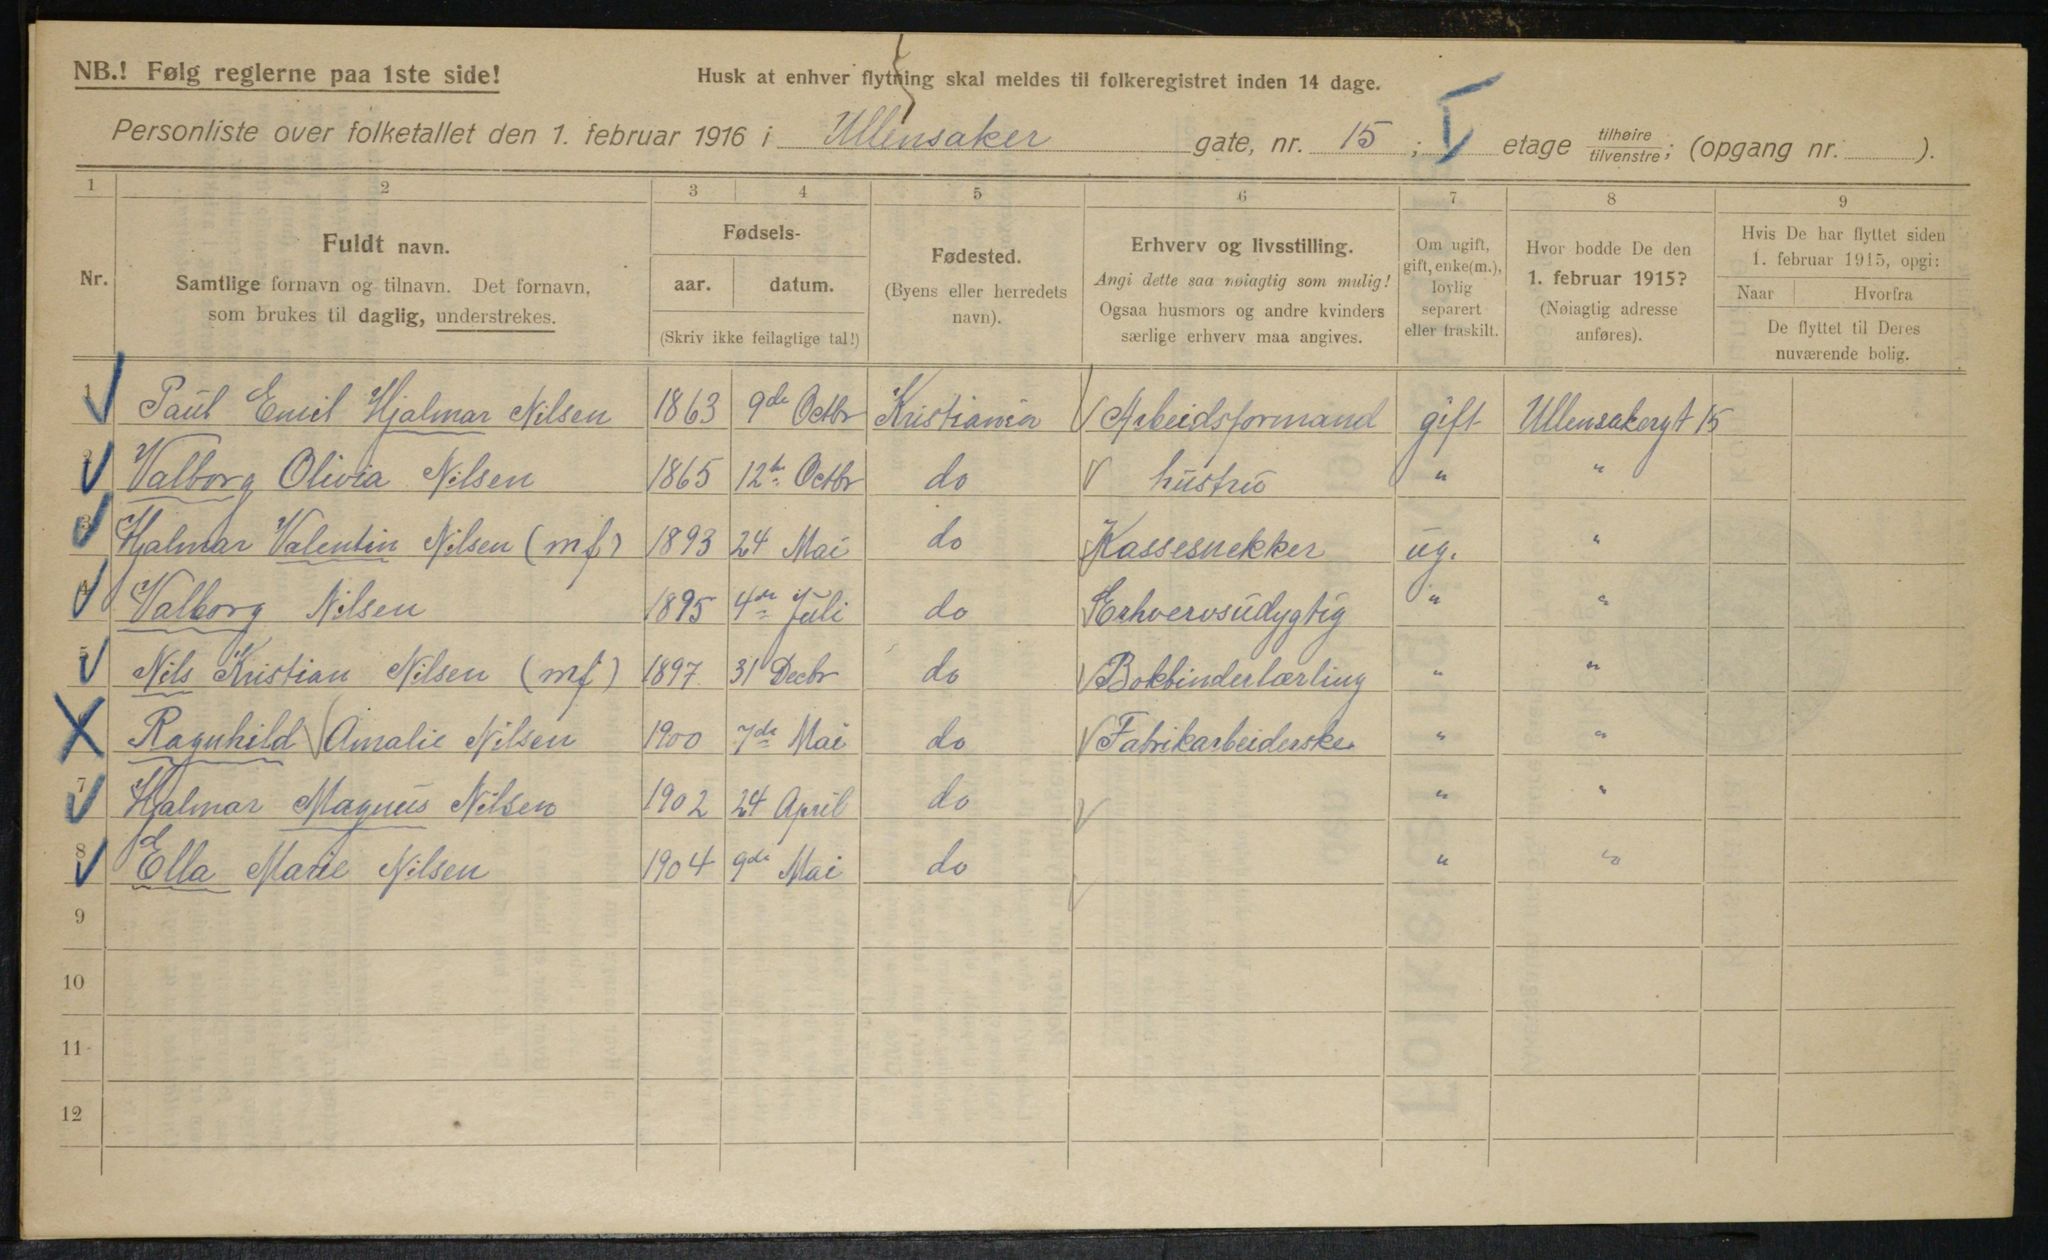 NB.! Følg reglerne paa 1ste side!
Husk at enhver flytning skal meldes til folkeregistret inden 14 dage.
Personliste over folketallet den 1. februar 1916 i Ullensaker gate, nr. 15 ; I etage tilhøire/tilvenstre; (opgang nr. ).
1 2 3 4 5 6 7 8 9
Nr.
Fuldt navn.
Samtlige fornavn og tilnavn. Det fornavn,
som brukes til daglig, understrekes.
Fødsels-
aar. datum.
(Skriv ikke feilagtige tal!)
Fødested.
(Byens eller herredets
navn).
Erhverv og livsstilling.
Angi dette saa nøiagtig som mulig!
Ogsaa husmors og andre kvinders
særlige erhverv maa angives.
Om ugift,
gift, enke(m.),
lovlig
separert
eller fraskilt.
Hvor bodde De den
1. februar 1915?
(Nøiagtig adresse
anføres).
Hvis De har flyttet siden
1. februar 1915, opgi:
Naar Hvorfra
De flyttet til Deres
nuværende bolig.
1 Paul Emil Hjalmar Nilsen 1863 9de Octbr Kristiania Arbeidsformand gift Ullensakergt 15
2 Valborg Olivia Nilsen 1865 12te Octbr do hustru " "
3 Hjalmar Valentin Nilsen (mf) 1893 24 Mai do Kassesnekker ug. "
4 Valborg Nilsen 1895 4de Juli do Erhvervsudygtig " "
5 Nils Kristian Nilsen (mf) 1897 31 Decbr do Bokbinderlærling " "
Ragnhild Amalie Nilsen 1900 7de Mai do Fabrikarbeiderske " "
7 Hjalmar Magnus Nilsen 1902 24 April do " "
8 Ella Marie Nilsen 1904 9de Mai do " "
9
10
11
12